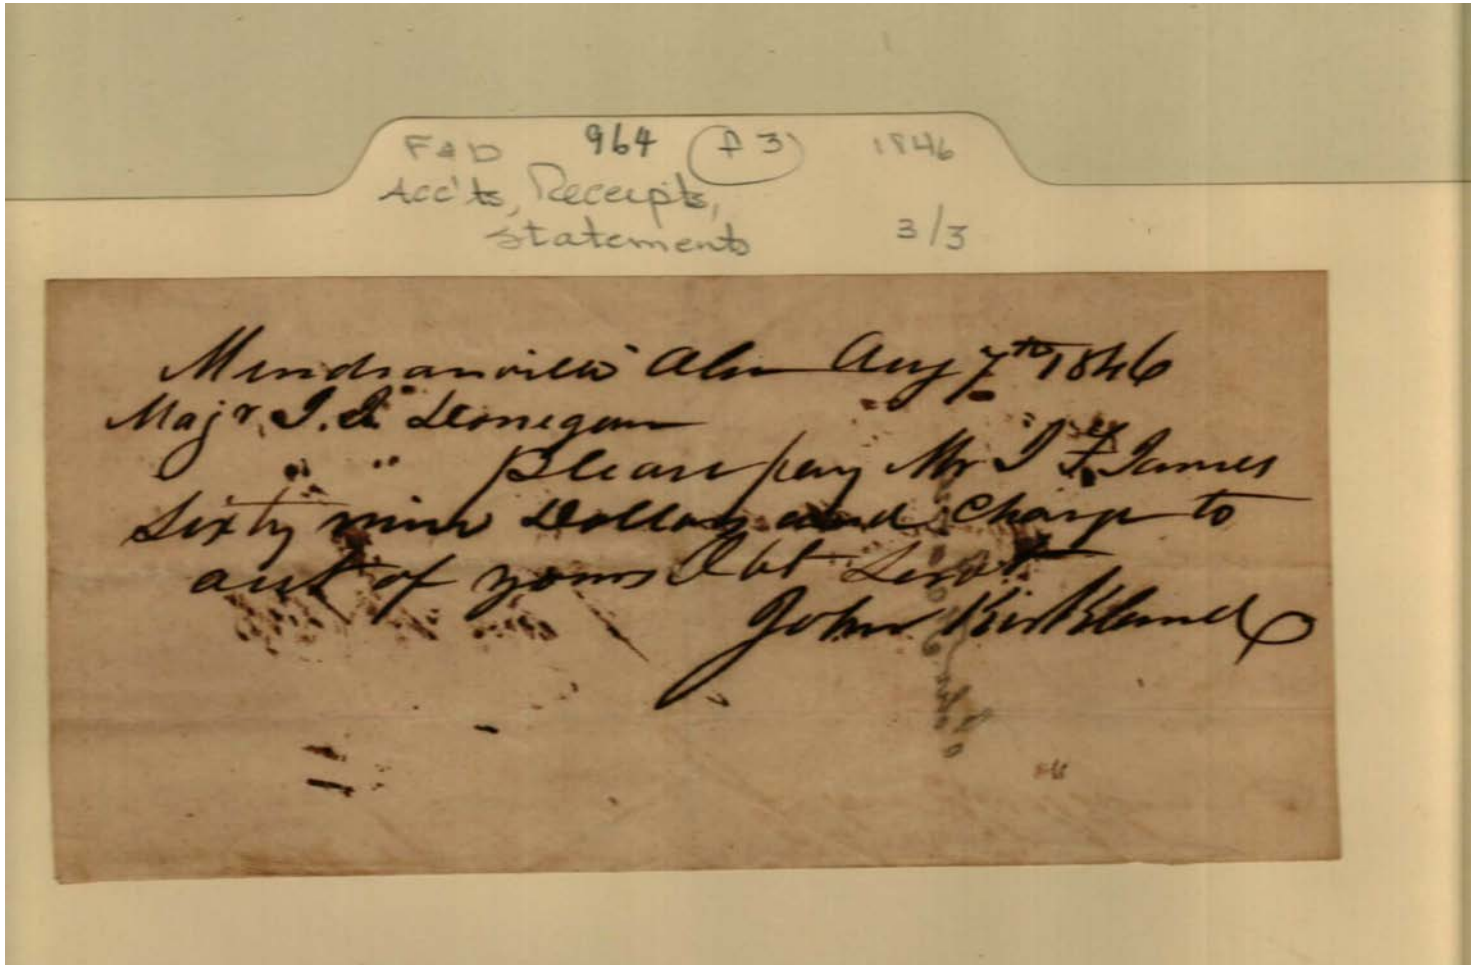 F & D 964 (f 3) 1846
Acc'ts, Receipts,
statements 3/3
Meridianville Ala Aug 7th 1846
Majr. J. J. Donegan
" " Please pay Mr J F. James
Sixty nine Dollars and charge to
act of yours Obt Servt
John Kirkland